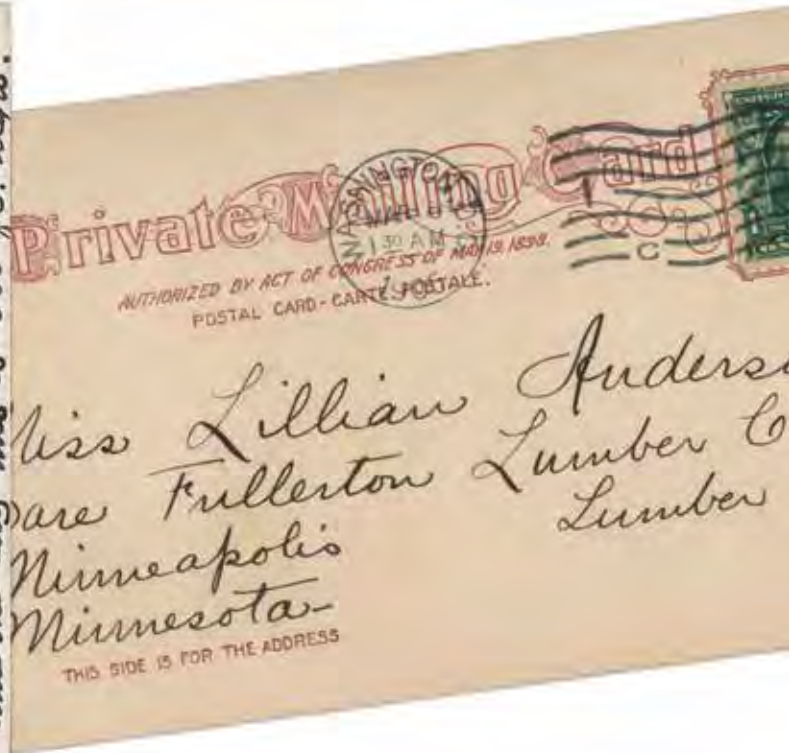 Private Mailing Card
AUTHORIZED BY ACT OF CONGRESS OF MAY 19, 1898.
POSTAL CARD - CARTE POSTALE.
WASHINGTON
1 30 AM
C
iss Lillian Anders
are Fullerton Lumber C
Lumber
Minneapolis
Minnesota
THIS SIDE IS FOR THE ADDRESS